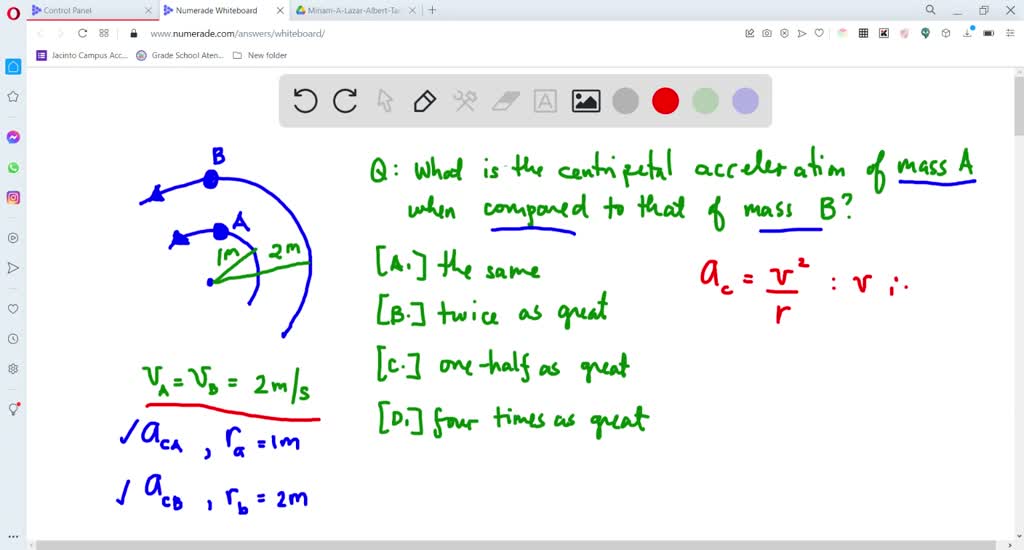 Control Panel
Numerade Whiteboard
Miriam-A-Lazar-Albert-Tar
www.numerade.com/answers/whiteboard/
Jacinto Campus Acc...
Grade School Aten...
New folder
A
B
A
1m
2m
Q: What is the centripetal acceleration of mass A
when compared to that of mass B?
[A.] the same
[B.] twice as great
[C.] one-half as great
[D.] four times as great
a_c = v²/r : v ∴
v_A = v_B = 2m/s
✓ a_cA , r_a = 1m
✓ a_cB , r_b = 2m